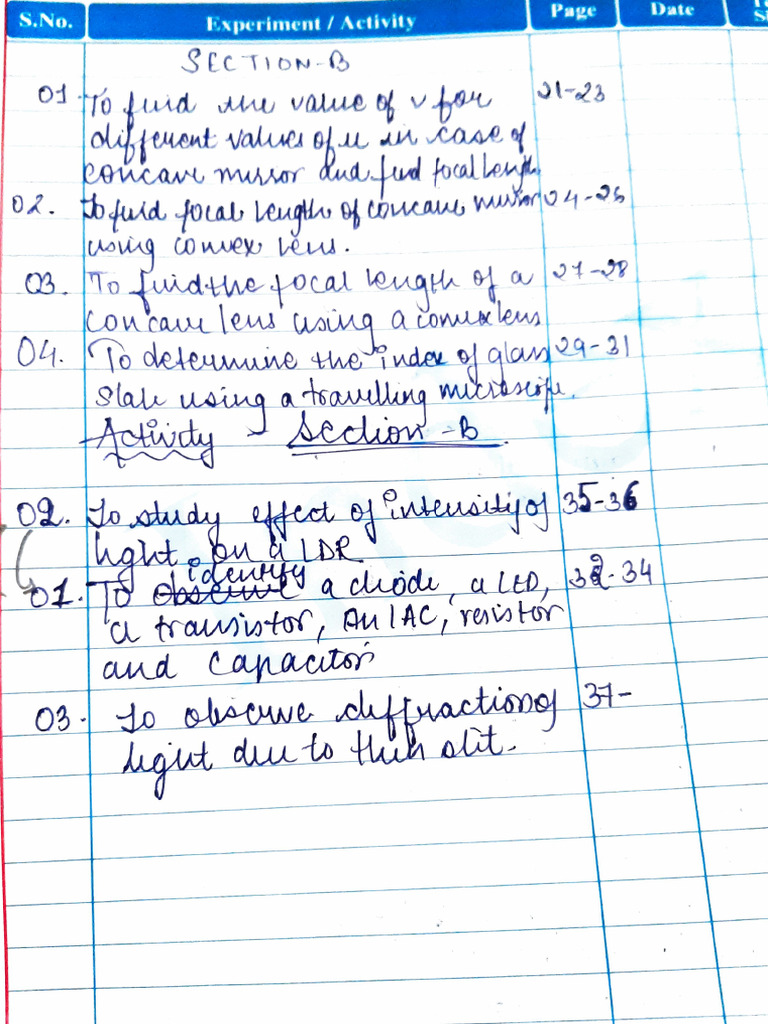 S.No. Experiment / Activity Page Date
SECTION-B
01 To find the value of v for 21-23
different values of u in case of
concave mirror and find focal length
02. To find focal length of concave mirror 24-25
using convex lens.
03. To find the focal length of a 27-28
concave lens using a convex lens
04. To determine the index of glass 29-31
slab using a travelling microscope.
Activity - Section-B
02. To study effect of intensity of 35-36
light on a LDR
identify
01. To observe a diode, a LED, 32-34
a transistor, an IAC, resistor
and capacitor
03. To observe diffraction of 37-
light due to thin slit.